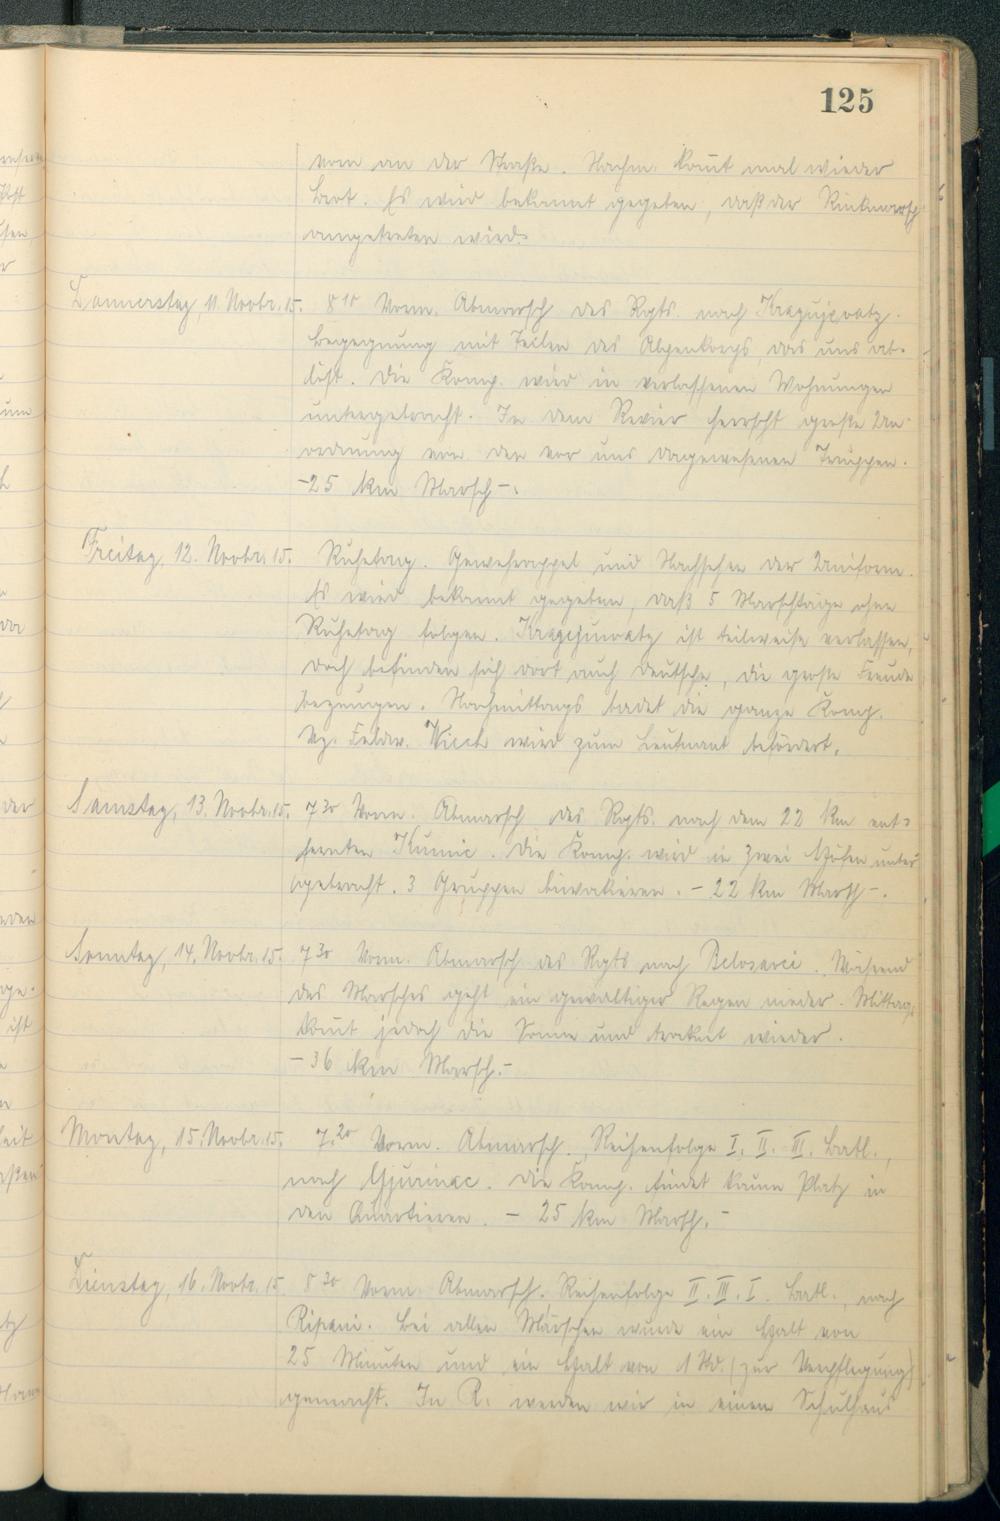 125
vorn an der Straße. Nachm. kom̄t mal wieder
Brot. Es wird bekannt gegeben, daß der Rückmarsch
angetreten wird.
Donnerstag, 11. Novbr. 15. 8¹⁰ Vorm. Abmarsch des Rgts. nach Kragujevatz.
Begegnung mit Teilen des Alpenkorps, das uns ab-
löst. Die Komp. wird in verlassenen Wohnungen
untergebracht. In dem Revier herrscht große Un-
ordnung von den vor uns dagewesenen Truppen.
- 25 km Marsch -.
Freitag, 12. Novbr. 15. Ruhetag. Gewehrappel und Nachsehen der Uniform.
Es wird bekannt gegeben, daß 5 Marschtage ohne
Ruhetag folgen. Kragejuvatz ist teilweise verlassen,
doch befinden sich dort auch Deutsche, die große Freude
bezeugen. Nachmittags badet die ganze Komp.
Vz. Feldw. wird zum Leutnant befördert.
Samstag, 13. Novbr. 15. 7³⁰ Vorm. Abmarsch des Rgts. nach dem 22 km ent-
fernten Kumic. Die Komp. wird in zwei Höfen unter
gebracht. 3 Gruppen biwakieren. - 22 km Marsch -.
Sonntag, 14. Novbr. 15. 7³⁰ Vorm. Abmarsch des Rgts nach Belosavci. Während
des Marsches geht ein gewaltiger Regen nieder. Mittags
kom̄t jedoch die Sonne und trocknet wieder.
- 36 km Marsch. -
Montag, 15. Novbr. 15. 7.²⁰ Vorm. Abmarsch. Reihenfolge I. II. III. Batl.,
nach Gjurinac. Die Komp. findet kaum Platz in
den Quartieren. - 25 km Marsch. -
Dienstag, 16. Novbr. 15 8³⁰ Vorm. Abmarsch. Reihenfolge II. III. I. Batl., nach
Ripani. Bei allen Märschen wurde ein Halt von
25 Minuten und ein Halt von 1 Std. (zur Verpflegung)
gemacht. In R. werden wir in einem Schulhaus